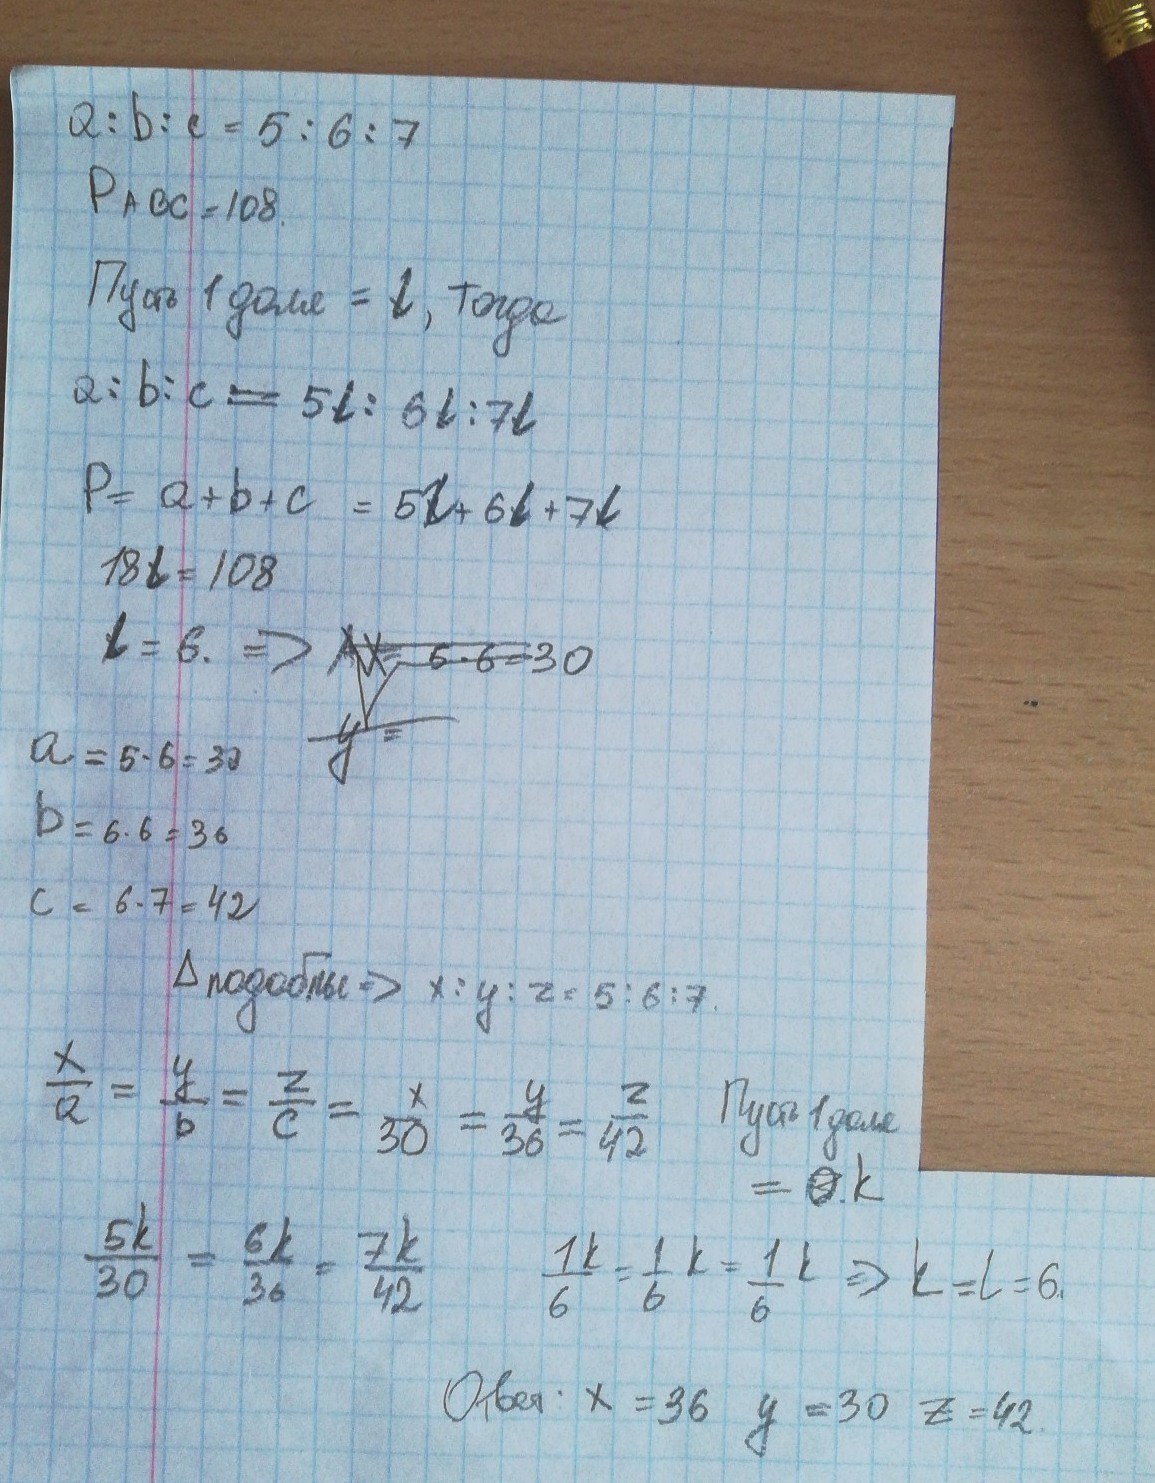 a:b:c = 5:6:7
PABC = 108.
Пусть 1 доля = l, тогда
a:b:c = 5l : 6l : 7l
P = a+b+c = 5l + 6l + 7l
18l = 108
l = 6. =>
a = 5·6 = 30
b = 6·6 = 36
c = 6·7 = 42
Δ подобны => x:y:z = 5:6:7.
x/a = y/b = z/c = x/30 = y/36 = z/42 Пусть 1 доля
= k
5k/30 = 6k/36 = 7k/42 1k/6 = 1/6 k = 1/6 k => k = l = 6.
Ответ: x = 36 y = 30 z = 42.